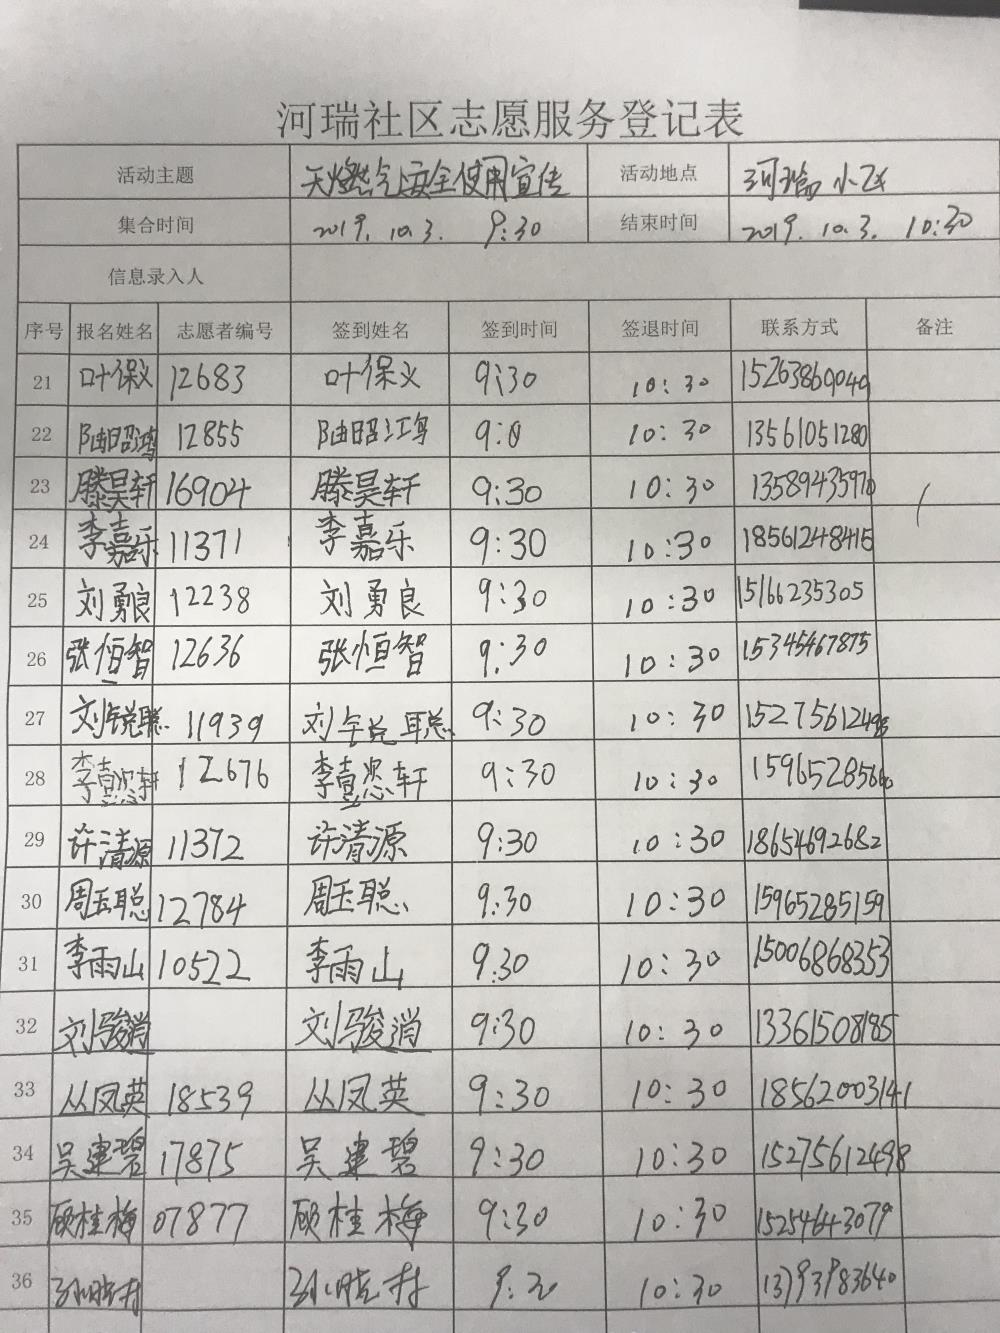 河瑞社区志愿服务登记表
活动主题 天燃气安全使用宣传 活动地点 河瑞小区
集合时间 2019.10.3. 9:30 结束时间 2019.10.3. 10:30
信息录入人
序号 报名姓名 志愿者编号 签到姓名 签到时间 签退时间 联系方式 备注
21 叶保义 12683 叶保义 9:30 10:30 15263860040
22 陆昭鸿 12855 陆昭鸿 10:30 13561051280
23 滕昊轩 16904 滕昊轩 9:30 10:30 13589435970
24 李嘉乐 11371 李嘉乐 9:30 10:30 18561248415
25 刘勇良 12238 刘勇良 9:30 10:30 15166235305
26 张恒智 12636 张恒智 9:30 10:30 15345467875
27 刘锐聪 11939 刘锐聪 9:30 10:30 15275612498
28 12676 9:30 10:30
29 许清源 11372 许清源 9:30 10:30 18654692682
30 周玉聪 12784 周玉聪 9:30 10:30 15965285159
31 李雨山 10522 李雨山 9:30 10:30 15006868353
32 刘骏逍 刘骏逍 9:30 10:30 13361508185
33 丛凤英 18539 丛凤英 9:30 10:30 18562003141
34 吴建碧 17875 吴建碧 9:30 10:30 15275612498
35 顾桂梅 07877 顾桂梅 9:30 10:30 15254643079
36 孙晓村 孙晓村 9:30 10:30 13793983640